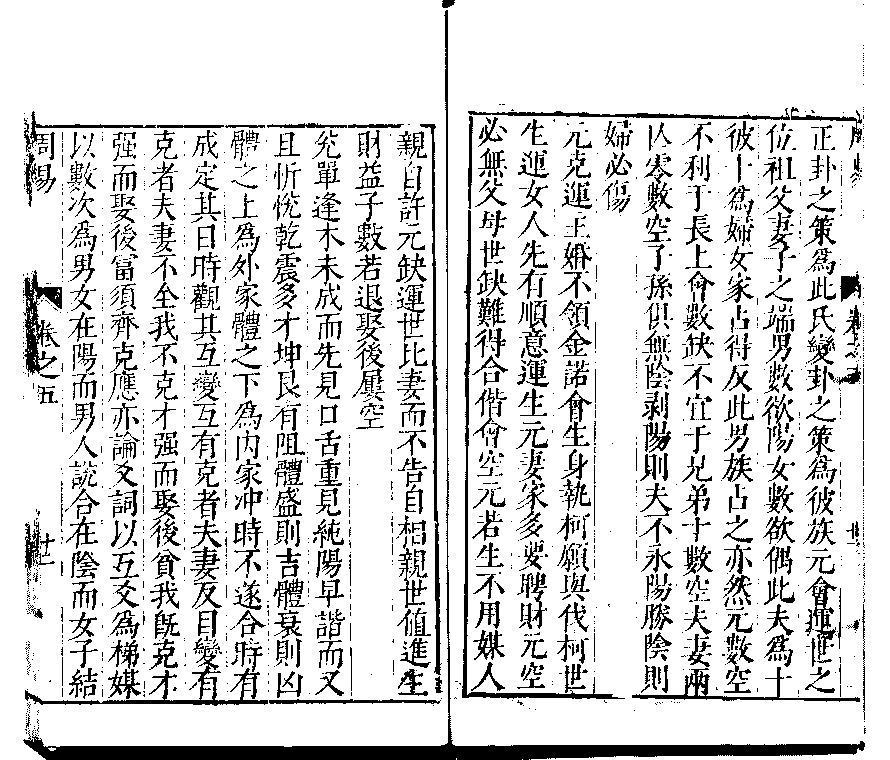 正卦之策為此氏變卦之策為彼族元會運世之
位祖父妻子之端男數欲陽女數欲偶此夫為十
彼十為婦女家占得反此男族占之亦然元數空
不利于長上會數缺不宜于兄弟十數空夫妻兩
仌零數空子孫俱無陰剥陽則夫不永陽勝陰則
婦必傷
元克運主婚不領金諾會生身執柯願與伐柯世
生運女人先有順意運生元妻家多要聘財元空
必無父母世缺難得合偕會空元若生不用媒人
親自許元缺運世比妻而不告自相親世值進生
財益子數若退娶後屢空
兊單逢木未成而先見口舌重見純陽早諧而又
且忻悅乾震多才坤艮有阻體盛則吉體衰則凶
體之上為外家體之下為內家冲時不遂合時有
成定其日時觀其互變互有克者夫妻反目變有
克者夫妻不全我不克才强而娶後貧我既克才
强而娶後富須齊克應亦論爻詞以互爻為梯媒
以數次為男女在陽而男人説合在陰而女子結
周易 卷之五 廿二